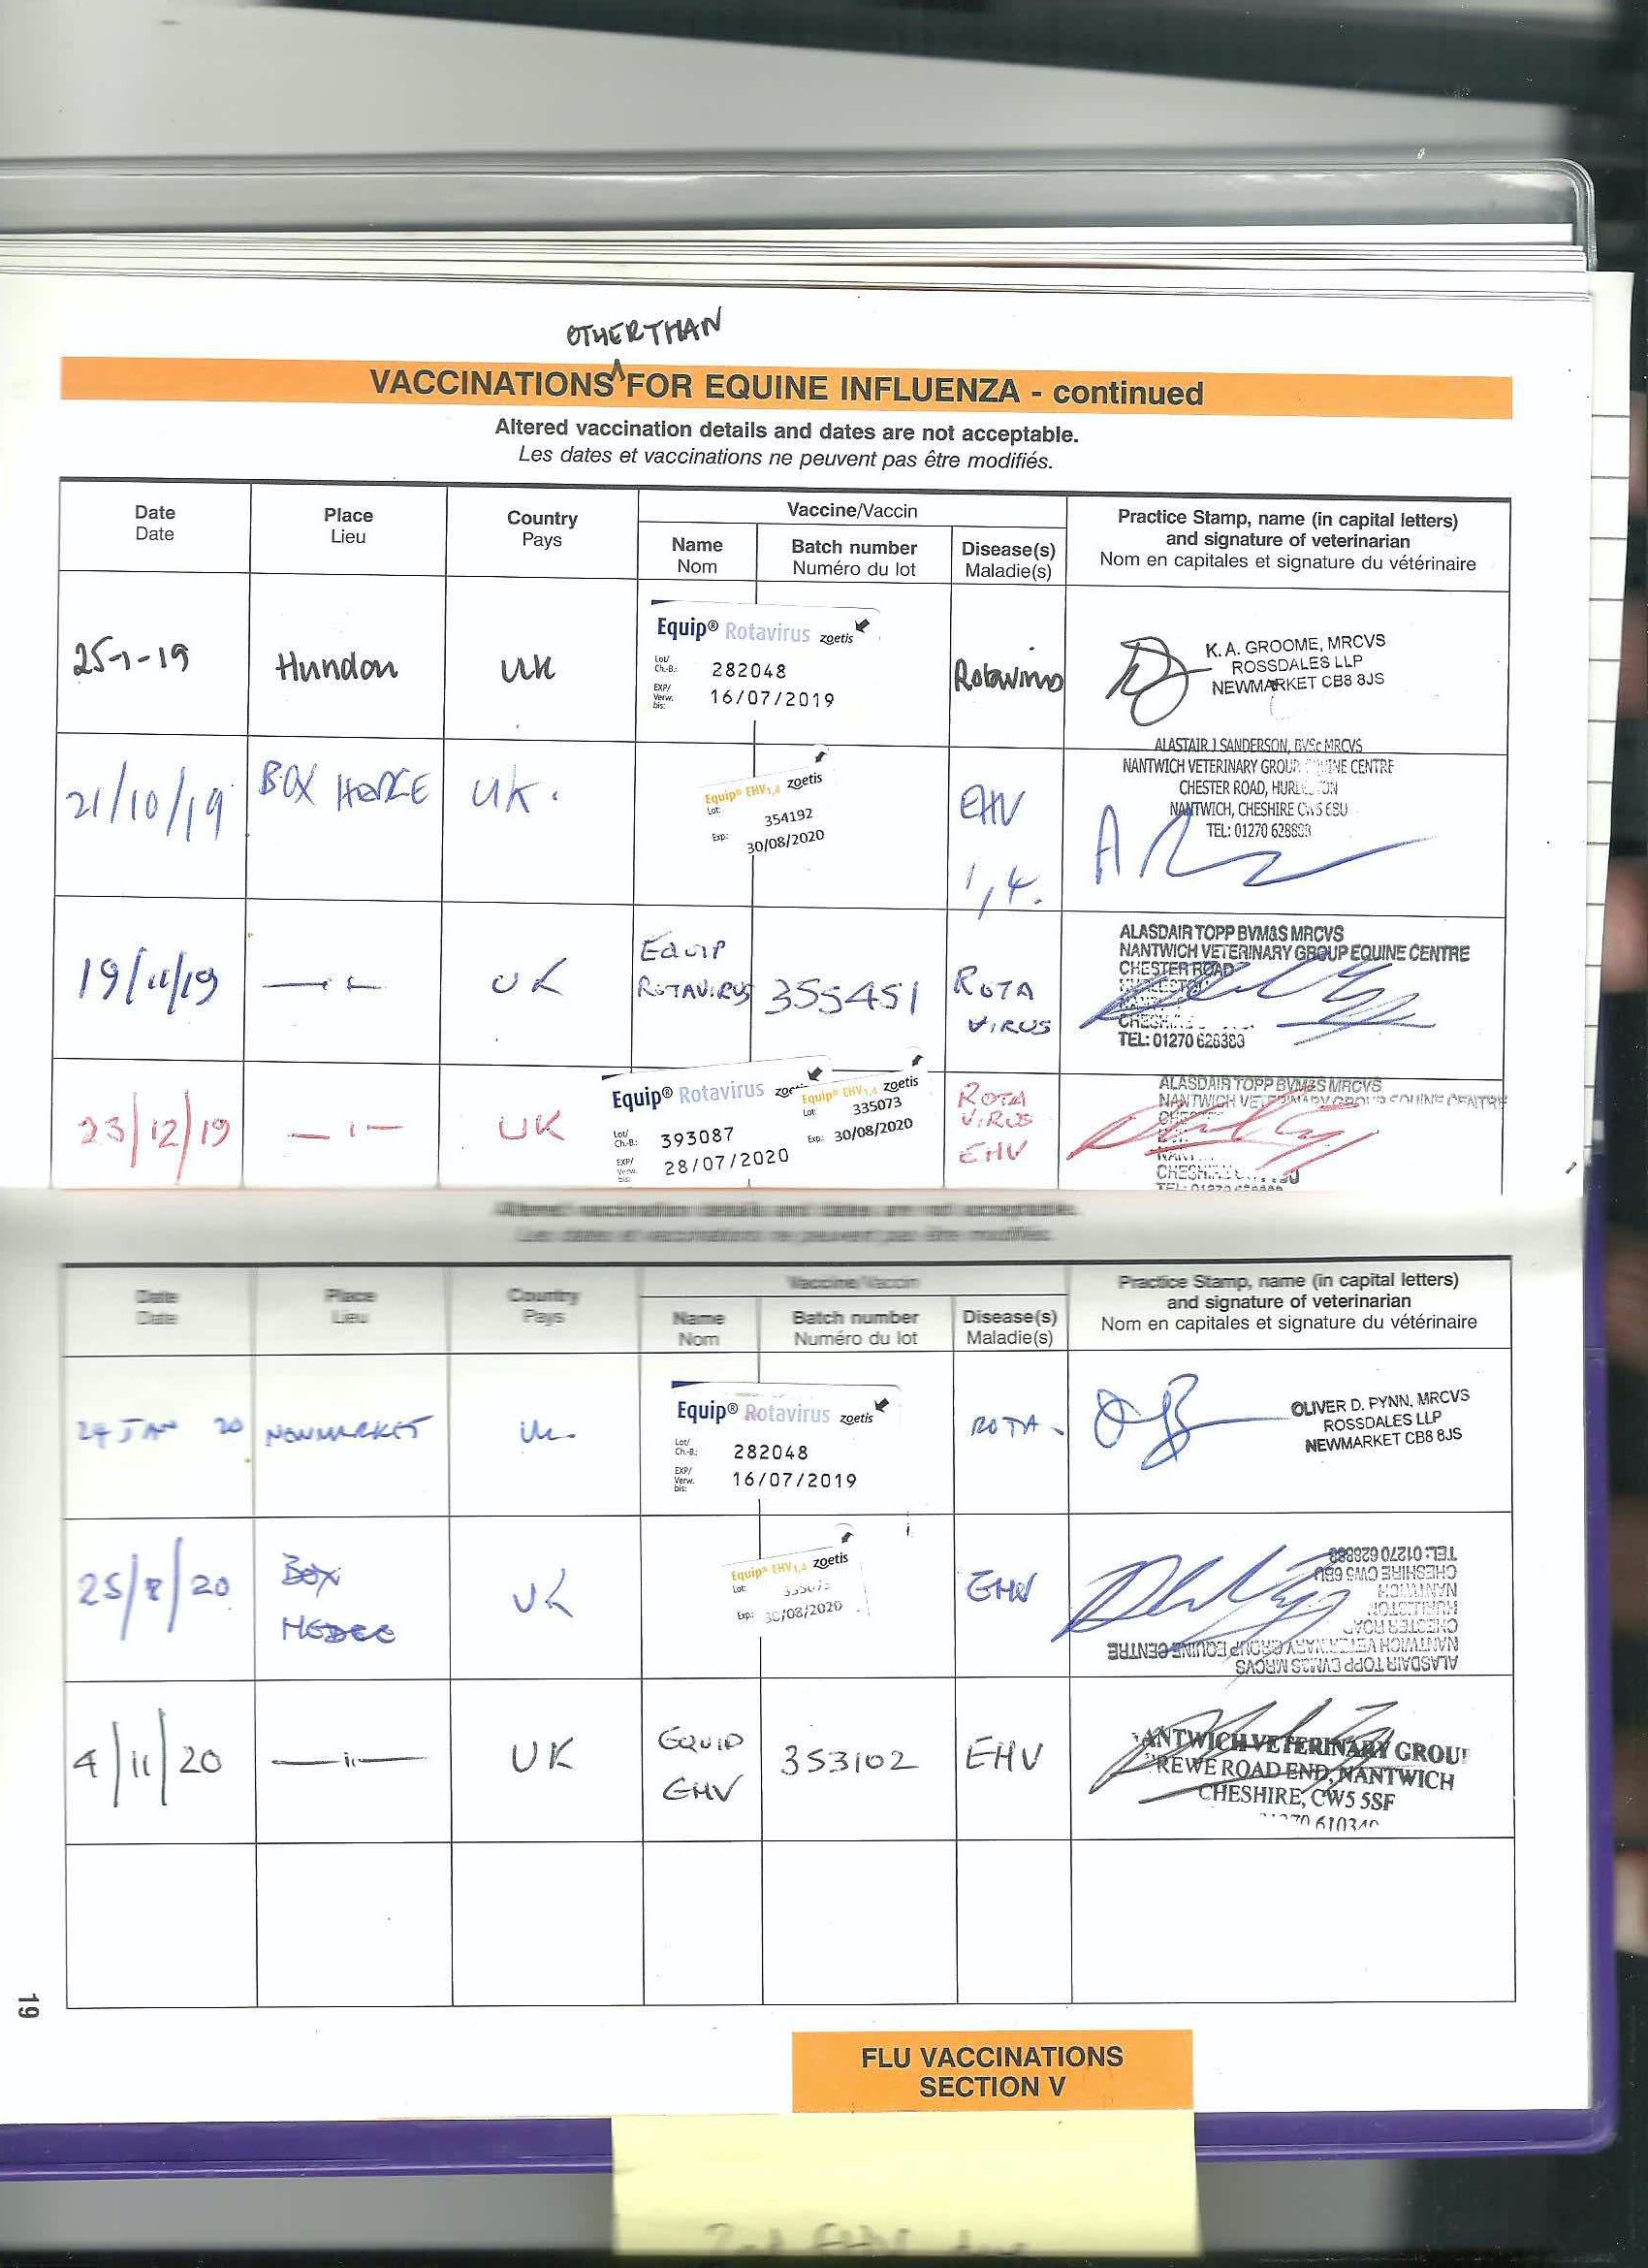 OTHER THAN
VACCINATIONS^FOR EQUINE INFLUENZA - continued
Altered vaccination details and dates are not acceptable.
Les dates et vaccinations ne peuvent pas être modifiés.
Date
Date
Place
Lieu
Country
Pays
Vaccine/Vaccin
Name
Nom
Batch number
Numéro du lot
Disease(s)
Maladie(s)
Practice Stamp, name (in capital letters)
and signature of veterinarian
Nom en capitales et signature du vétérinaire
25-1-19
Hundon
UK
Equip® Rotavirus zoetis
Lot/
Ch.-B.:
282048
EXP/
Verw.
bis:
16/07/2019
Rotavirus
K.A. GROOME, MRCVS
ROSSDALES LLP
NEWMARKET CB8 8JS
21/10/19
BOX HEDGE
UK.
Equip® EHV1,4 zoetis
Lot:
354192
Exp:
30/08/2020
EHV
1,4.
ALASTAIR J SANDERSON, BVSc MRCVS
NANTWICH VETERINARY GROUP EQUINE CENTRE
CHESTER ROAD, HURLESTON
NANTWICH, CHESHIRE CW5 6BU
TEL: 01270 628883
19/11/19
— " —
UK
EQUIP
ROTAVIRUS
355451
ROTA
VIRUS
ALASDAIR TOPP BVM&S MRCVS
NANTWICH VETERINARY GROUP EQUINE CENTRE
CHESTER ROAD
TEL: 01270 628383
23/12/19
— " —
UK
Equip® Rotavirus
Lot/
Ch.-B.:
393087
EXP/
Verw.
bis:
28/07/2020
Equip® EHV1,4 zoetis
Lot:
335073
Exp: 30/08/2020
ROTA
VIRUS
EHV
ALASDAIR TOPP BVM&S MRCVS
NANTWICH VETERINARY GROUP EQUINE CENTRE
Altered vaccination details and dates are not acceptable.
Les dates et vaccinations ne peuvent pas être modifiés.
Date
Date
Place
Lieu
Country
Pays
Vaccine/Vaccin
Name
Nom
Batch number
Numéro du lot
Disease(s)
Maladie(s)
Practice Stamp, name (in capital letters)
and signature of veterinarian
Nom en capitales et signature du vétérinaire
JAN 20
NEWMARKET
UK.
Equip® Rotavirus zoetis
Lot/
Ch.-B.:
282048
EXP/
Verw.
bis:
16/07/2019
ROTA.
OLIVER D. PYNN, MRCVS
ROSSDALES LLP
NEWMARKET CB8 8JS
25/8/20
BOX
HEDGE
UK
Equip® EHV1,4 zoetis
Lot:
Exp: 30/08/2020
EHV
ALASDAIR TOPP BVM&S MRCVS
NANTWICH VETERINARY GROUP EQUINE CENTRE
CHESTER ROAD
HURLESTON
NANTWICH
CHESHIRE CW5 6BU
TEL: 01270 628883
4/11/20
— " —
UK
EQUIP
EHV
353102
EHV
ANTWICH VETERINARY GROUP
REWE ROAD END, NANTWICH
CHESHIRE, CW5 5SF
19
FLU VACCINATIONS
SECTION V